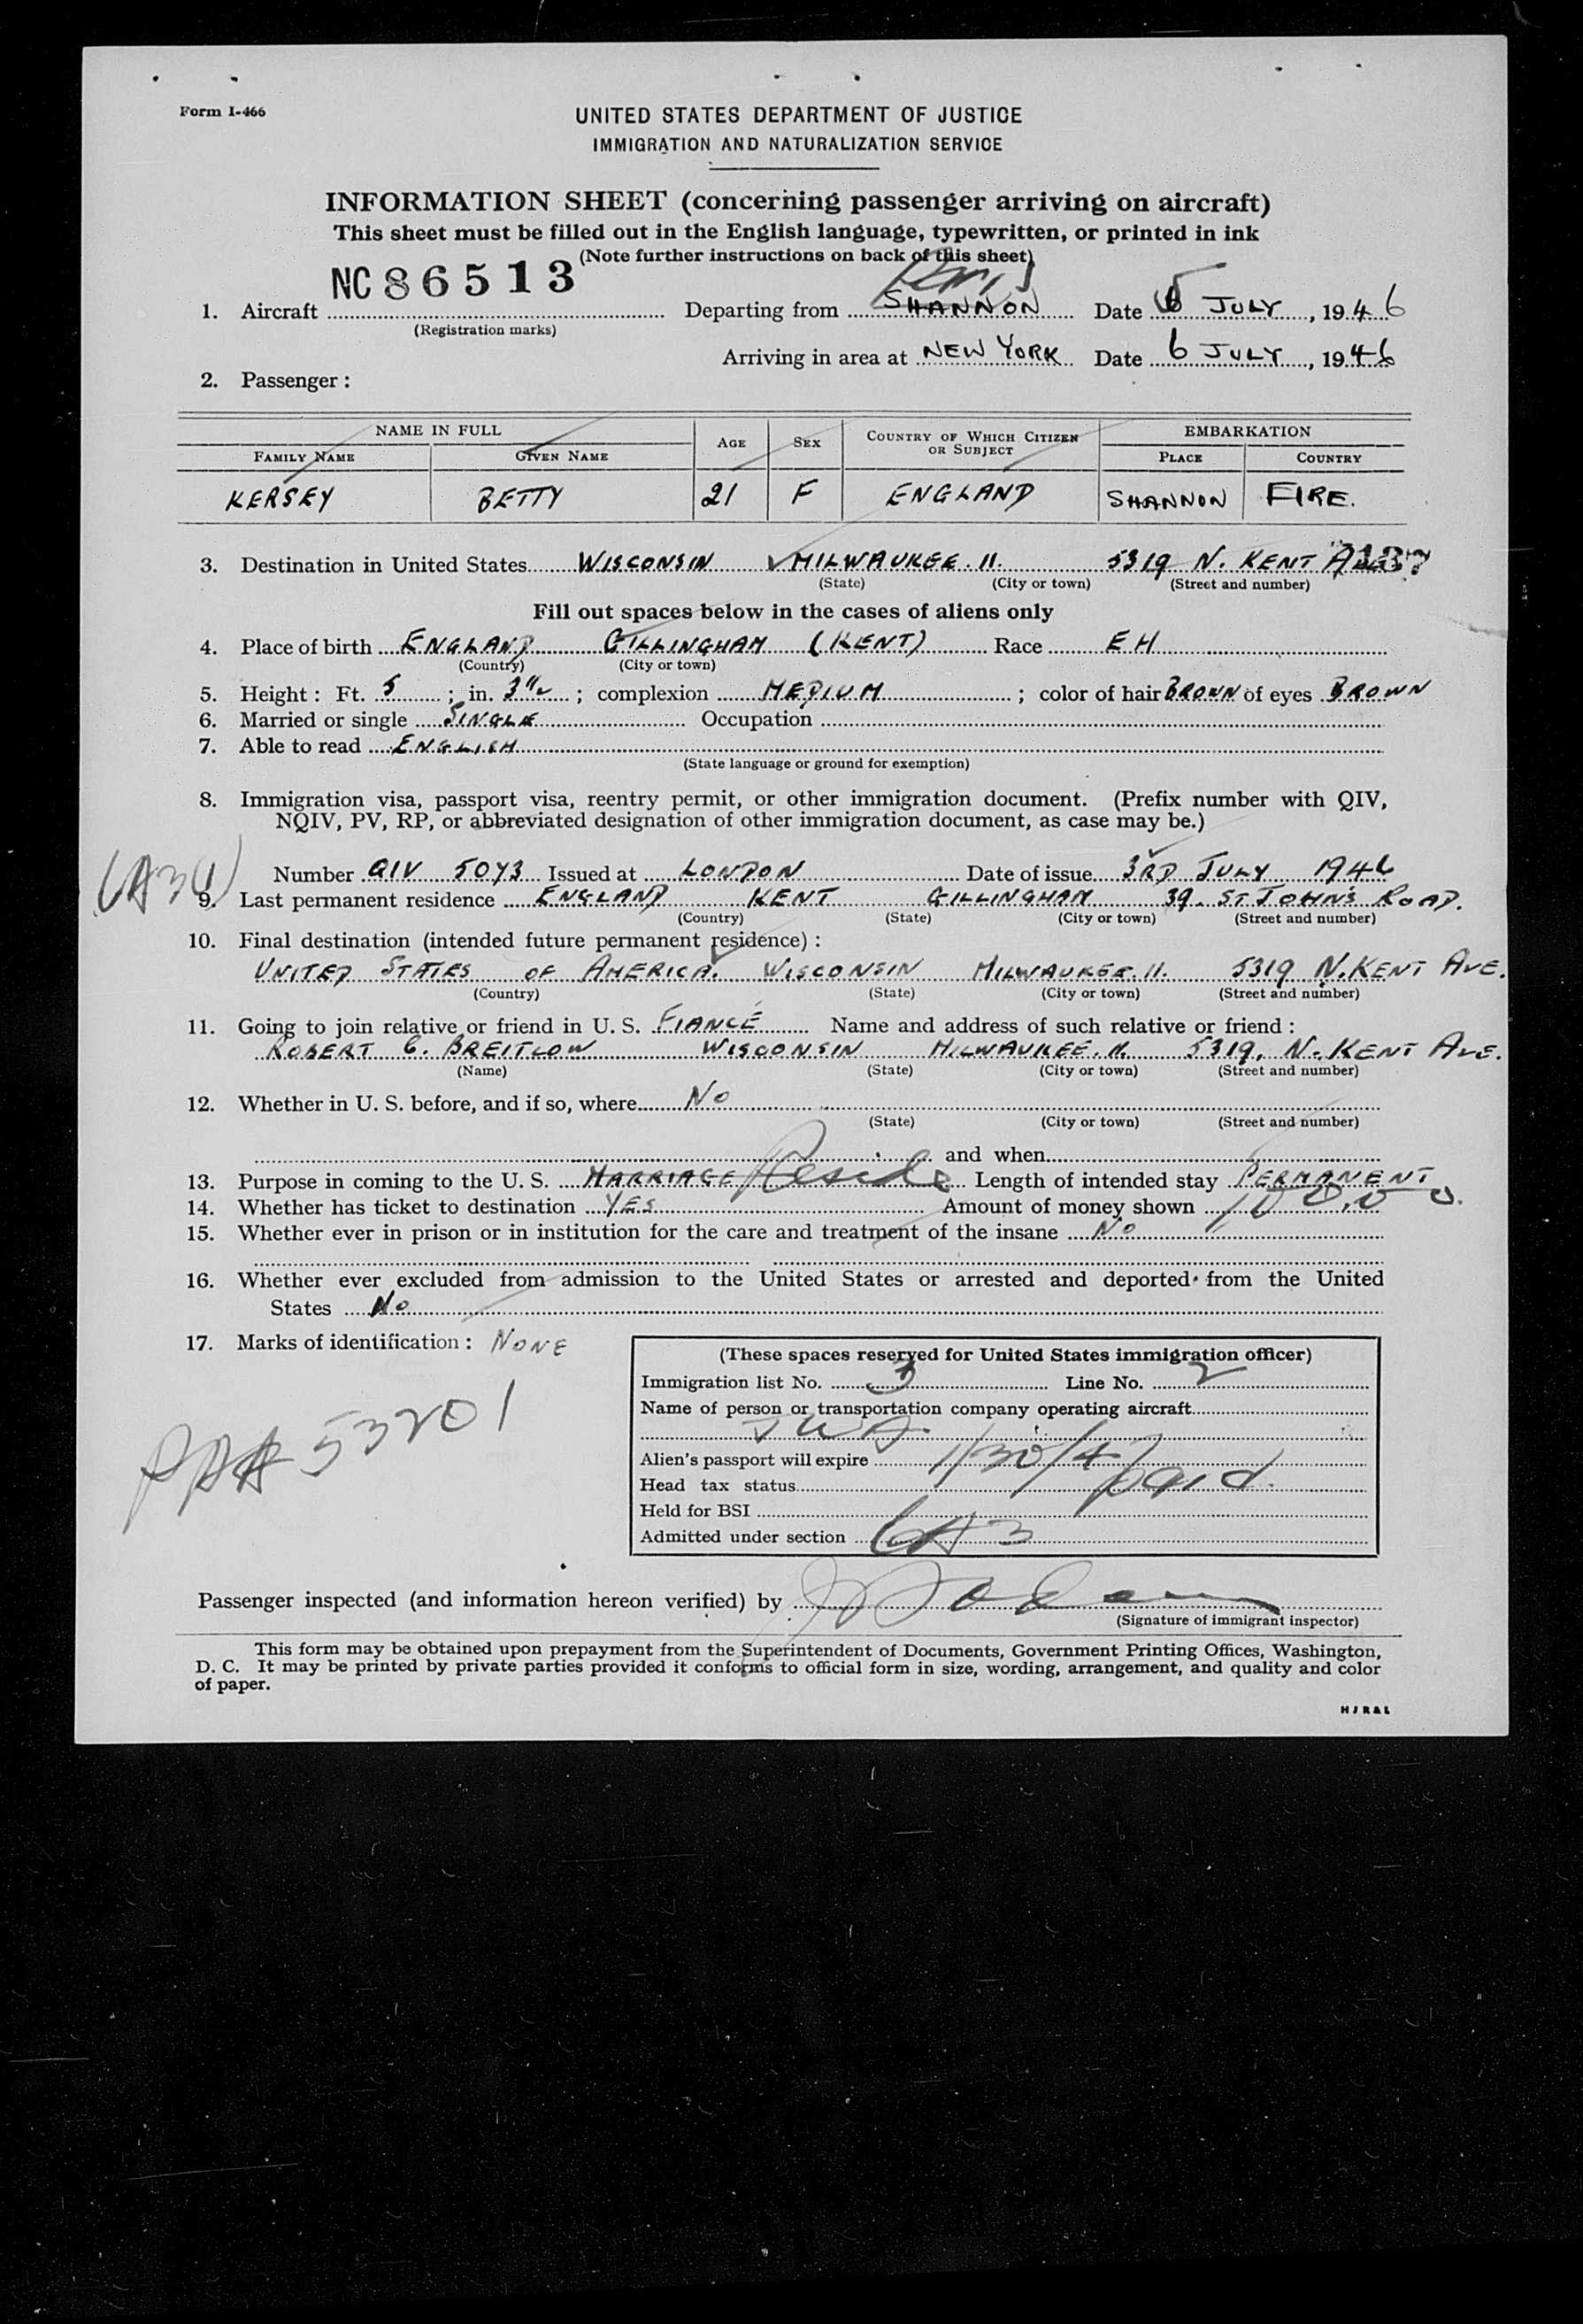 Form I-466
UNITED STATES DEPARTMENT OF JUSTICE
IMMIGRATION AND NATURALIZATION SERVICE
INFORMATION SHEET (concerning passenger arriving on aircraft)
This sheet must be filled out in the English language, typewritten, or printed in ink
(Note further instructions on back of this sheet)
1. Aircraft NC86513 Departing from SHANNON Paris Date 5 JULY, 1946
(Registration marks)
Arriving in area at NEW YORK Date 6 JULY, 1946
2. Passenger:
NAME IN FULL AGE SEX COUNTRY OF WHICH CITIZEN OR SUBJECT EMBARKATION
FAMILY NAME GIVEN NAME PLACE COUNTRY
KERSEY BETTY 21 F ENGLAND SHANNON EIRE.
3. Destination in United States WISCONSIN MILWAUKEE. 11. 5319 N. KENT
(State) (City or town) (Street and number)
Fill out spaces below in the cases of aliens only
4. Place of birth ENGLAND GILLINGHAM (KENT) Race EH
(Country) (City or town)
5. Height: Ft. 5; in. 3½; complexion MEDIUM; color of hair BROWN of eyes BROWN
6. Married or single SINGLE Occupation
7. Able to read ENGLISH
(State language or ground for exemption)
8. Immigration visa, passport visa, reentry permit, or other immigration document. (Prefix number with QIV,
NQIV, PV, RP, or abbreviated designation of other immigration document, as case may be.)
Number QIV 5073 Issued at LONDON Date of issue 3RD JULY 1946
9. Last permanent residence ENGLAND KENT GILLINGHAM 39. ST JOHN'S ROAD.
(Country) (State) (City or town) (Street and number)
10. Final destination (intended future permanent residence):
UNITED STATES OF AMERICA. WISCONSIN MILWAUKEE. 11. 5319 N. KENT AVE.
(Country) (State) (City or town) (Street and number)
11. Going to join relative or friend in U. S. FIANCÉ Name and address of such relative or friend:
ROBERT C. BREITLOW WISCONSIN MILWAUKEE. 11. 5319. N. KENT AVE.
(Name) (State) (City or town) (Street and number)
12. Whether in U. S. before, and if so, where NO
(State) (City or town) (Street and number)
and when
13. Purpose in coming to the U. S. MARRIAGE Reside Length of intended stay PERMANENT
14. Whether has ticket to destination YES Amount of money shown 100.00.
15. Whether ever in prison or in institution for the care and treatment of the insane NO
16. Whether ever excluded from admission to the United States or arrested and deported from the United
States NO
17. Marks of identification: NONE
(These spaces reserved for United States immigration officer)
Immigration list No. 3 Line No. 2
Name of person or transportation company operating aircraft
TWA
Alien's passport will expire 1/30/47
Head tax status paid.
Held for BSI
Admitted under section 6A3
53201
Passenger inspected (and information hereon verified) by
(Signature of immigrant inspector)
This form may be obtained upon prepayment from the Superintendent of Documents, Government Printing Offices, Washington,
D. C. It may be printed by private parties provided it conforms to official form in size, wording, arrangement, and quality and color
of paper.